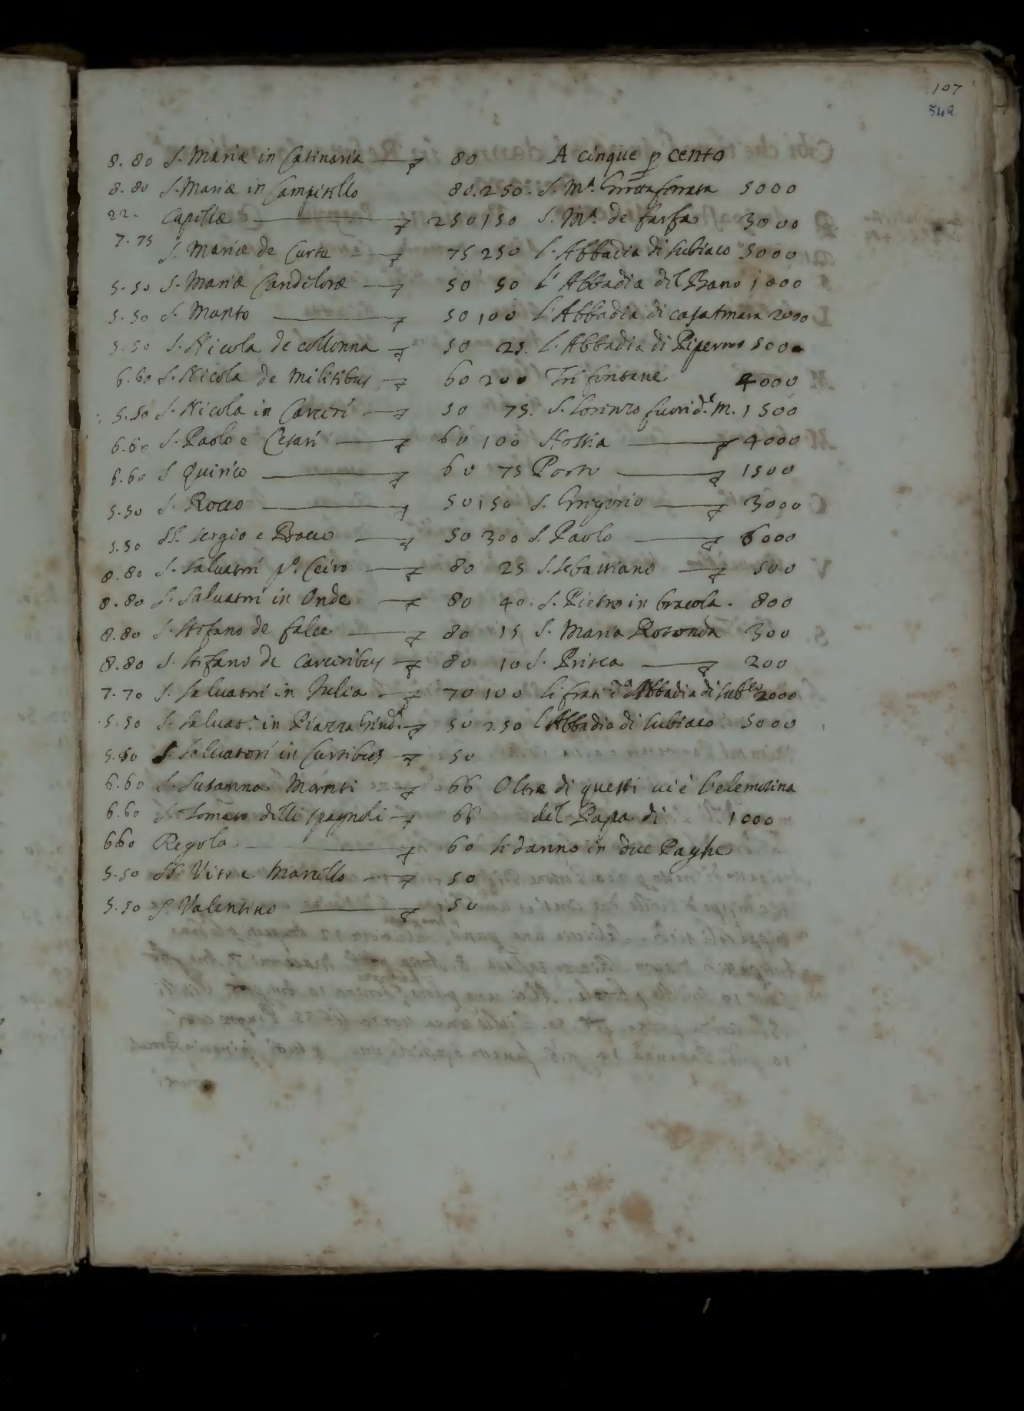 107
549
8.80 S. Mariæ in Catinaria 80 A cinque p cento
8.80 S. Mariæ in Campitello 80. 250. S. Mª. Grottaferrata 5000
22. Capissæ 250 150 S. Mª. de farfa 3000
7.75 S. Mariæ de Curte 75 250 L'Abbadia di Subiaco 5000
5.50 S. Mariæ Candeloræ 50 50 L'Abbadia del Bano 1000
5.50 S. Manto 50 100 L'Abbadia di casatmara 2000
5.50 S. Nicola de collonna 50 25. L'Abbadia di Piperno 500
6.60 S. Nicola de Militibus 60 200 Tri fontane 4000
5.50 S. Nicola in Carceri 50 75. S. Lorenzo fuori d. M. 1500
6.60 S. Paolo e Cesari 60 100 Hostia 4000
6.60 S. Quirico 60 75 Porto 1500
5.50 S. Rocco 50 150 S. Grigorio 3000
5.50 SS. Sergio e Bacco 50 300 S. Paolo 6000
8.80 S. Salvatori 80 25 S. Sebastiano 500
8.80 S. Salvatri in Onde 80 40. S. Pietro in 800
8.80 S. Stefano de falce 80 15 S. Maria Rotonda 300
8.80 S. Stefano de Carceribus 80 10 S. Prisca 200
7.70 S. Salvatri in Julia 70 100 Li frati d.ª Abbadia di Sub.co 2000
5.50 S. Salvat. in Piazza 50 250 L'Abbadia di Subiaco 5000
5.50 S. Salvatori in Curtibus 50
6.60 S. Susanna 66 Oltre di questi ui è l'elemosina
6.60 S. Tomaso delli spagnoli 66 del Papa di 1000
660 Regola 60 si danno in due Paghe
5.50 SS. Vito e Marcello 50
5.50 S. Valentino 50